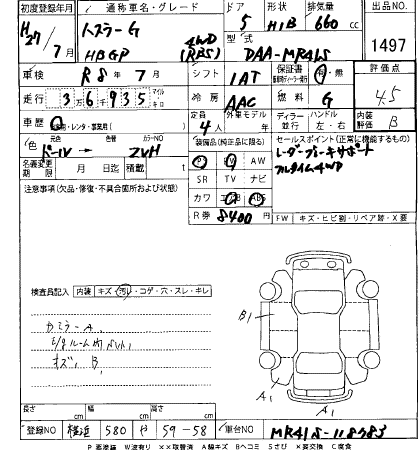 初度登録年月 通称車名・グレード ドア 形状 排気量 出品NO
H27/7月 ハスラー G 4WD 5 H/B 660 cc 1497
HBGP (RBS) 型式 DAA-MR41S
車検 R8年7月 シフト IAT 保証書 有・無 評価点
走行 36935 マイル キロ 冷房 AAC 燃料 G 4.5
車歴 自家用・レンタ・事業用( ) 定員 4人 外車モデル ディーラー 並行 ハンドル 左・右 内装評価 B
色 パール → ZVH 色替 カラーNO 装備品(純正品に限る) セールスポイント(正常に機能するもの)
名義変更期限 月 日迄 積載 t PS PW AW レーダーブレーキサポート
注意事項(欠品・修復・不具合箇所および状態) SR TV ナビ フルタイム4WD
カワ エアB ABS
R券 8400円 FW キズ・ヒビ割・リペア跡・X要
検査員記入 内装 キズ・汚レ・コゲ・穴・スレ・キレ
カミラーA
キズ B
B1
A1 A1
長さ cm 幅 cm 高さ cm
登録NO 横浜 580 や 59-58 車台NO MR41S-118383
P 要塗装 W波有り ××取替済 A線キズ Bヘコミ Sさび ×要交換 C腐食